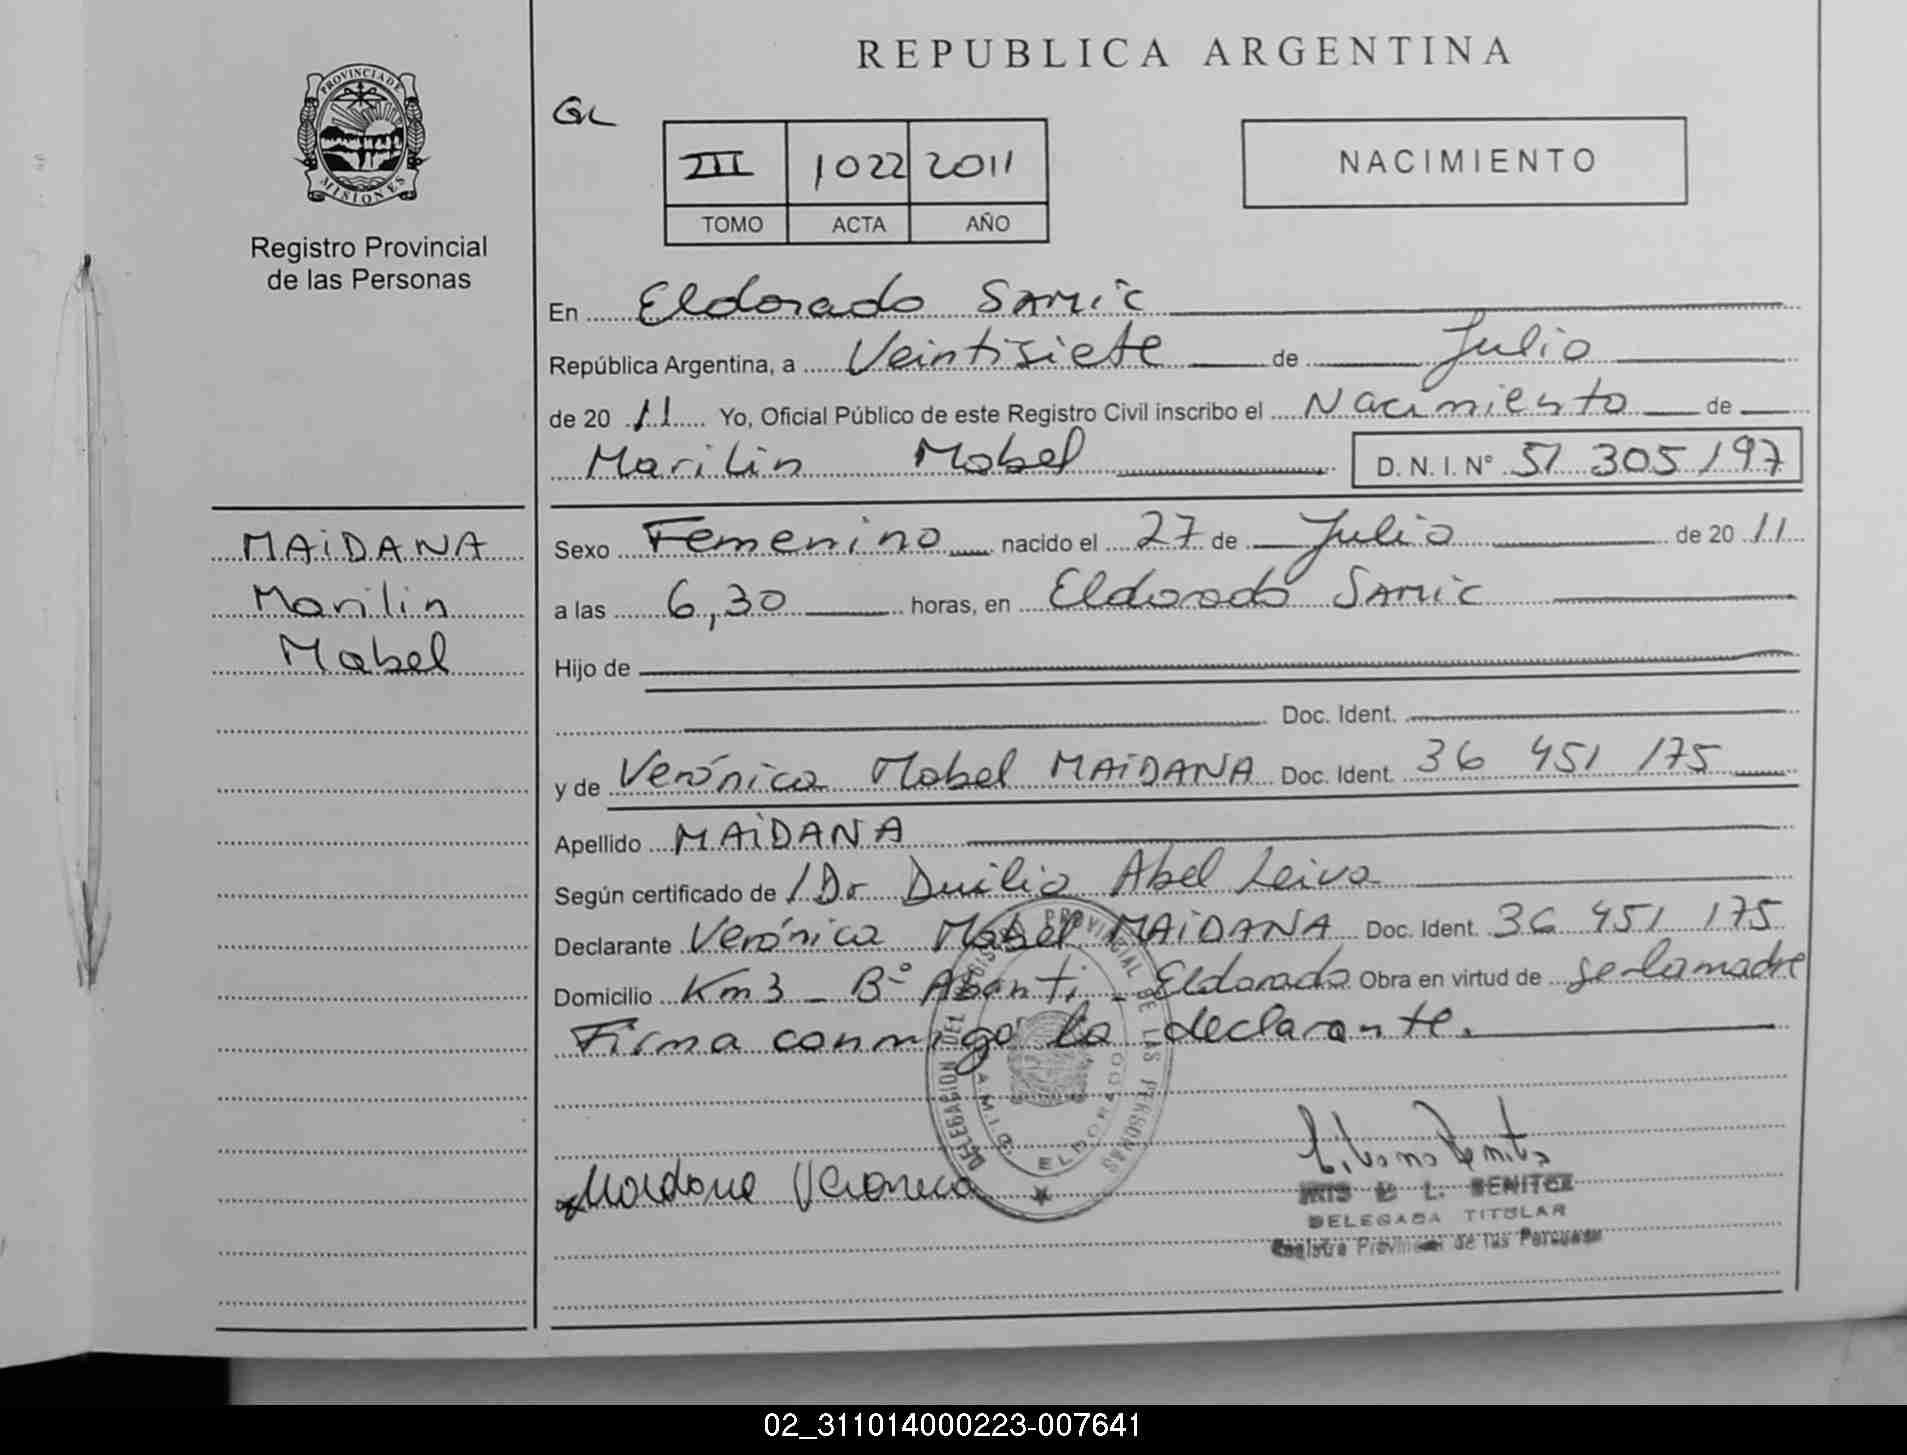 REPUBLICA ARGENTINA
PROVINCIA DE
MISIONES
Registro Provincial
de las Personas
GL
III 1022 2011
TOMO ACTA AÑO
NACIMIENTO
En Eldorado SAMIC
República Argentina, a Veintisiete de Julio
de 20 11 Yo, Oficial Público de este Registro Civil inscribo el Nacimiento de
Marilin Mabel D. N. I. N° 51 305 197
MAIDANA
Marilin
Mabel
Sexo Femenino nacido el 27 de Julio de 20 11
a las 6,30 horas, en Eldorado SAMIC
Hijo de
Doc. Ident.
y de Verónica Mabel MAIDANA Doc. Ident. 36 451 175
Apellido MAIDANA
Según certificado de /Dr Duilio Abel Leiva
Declarante Verónica Mabel MAIDANA Doc. Ident. 36 451 175
Domicilio Km3 - B° Abanti - Eldorado Obra en virtud de ser la madre
Firma conmigo la declarante.
DELEGACION DEL REGISTRO PROVINCIAL DE LAS PERSONAS
ELDORADO
Maidana Veronica
L. BENITEZ
DELEGADA TITULAR
Registro Provincial de las Personas
02_311014000223-007641